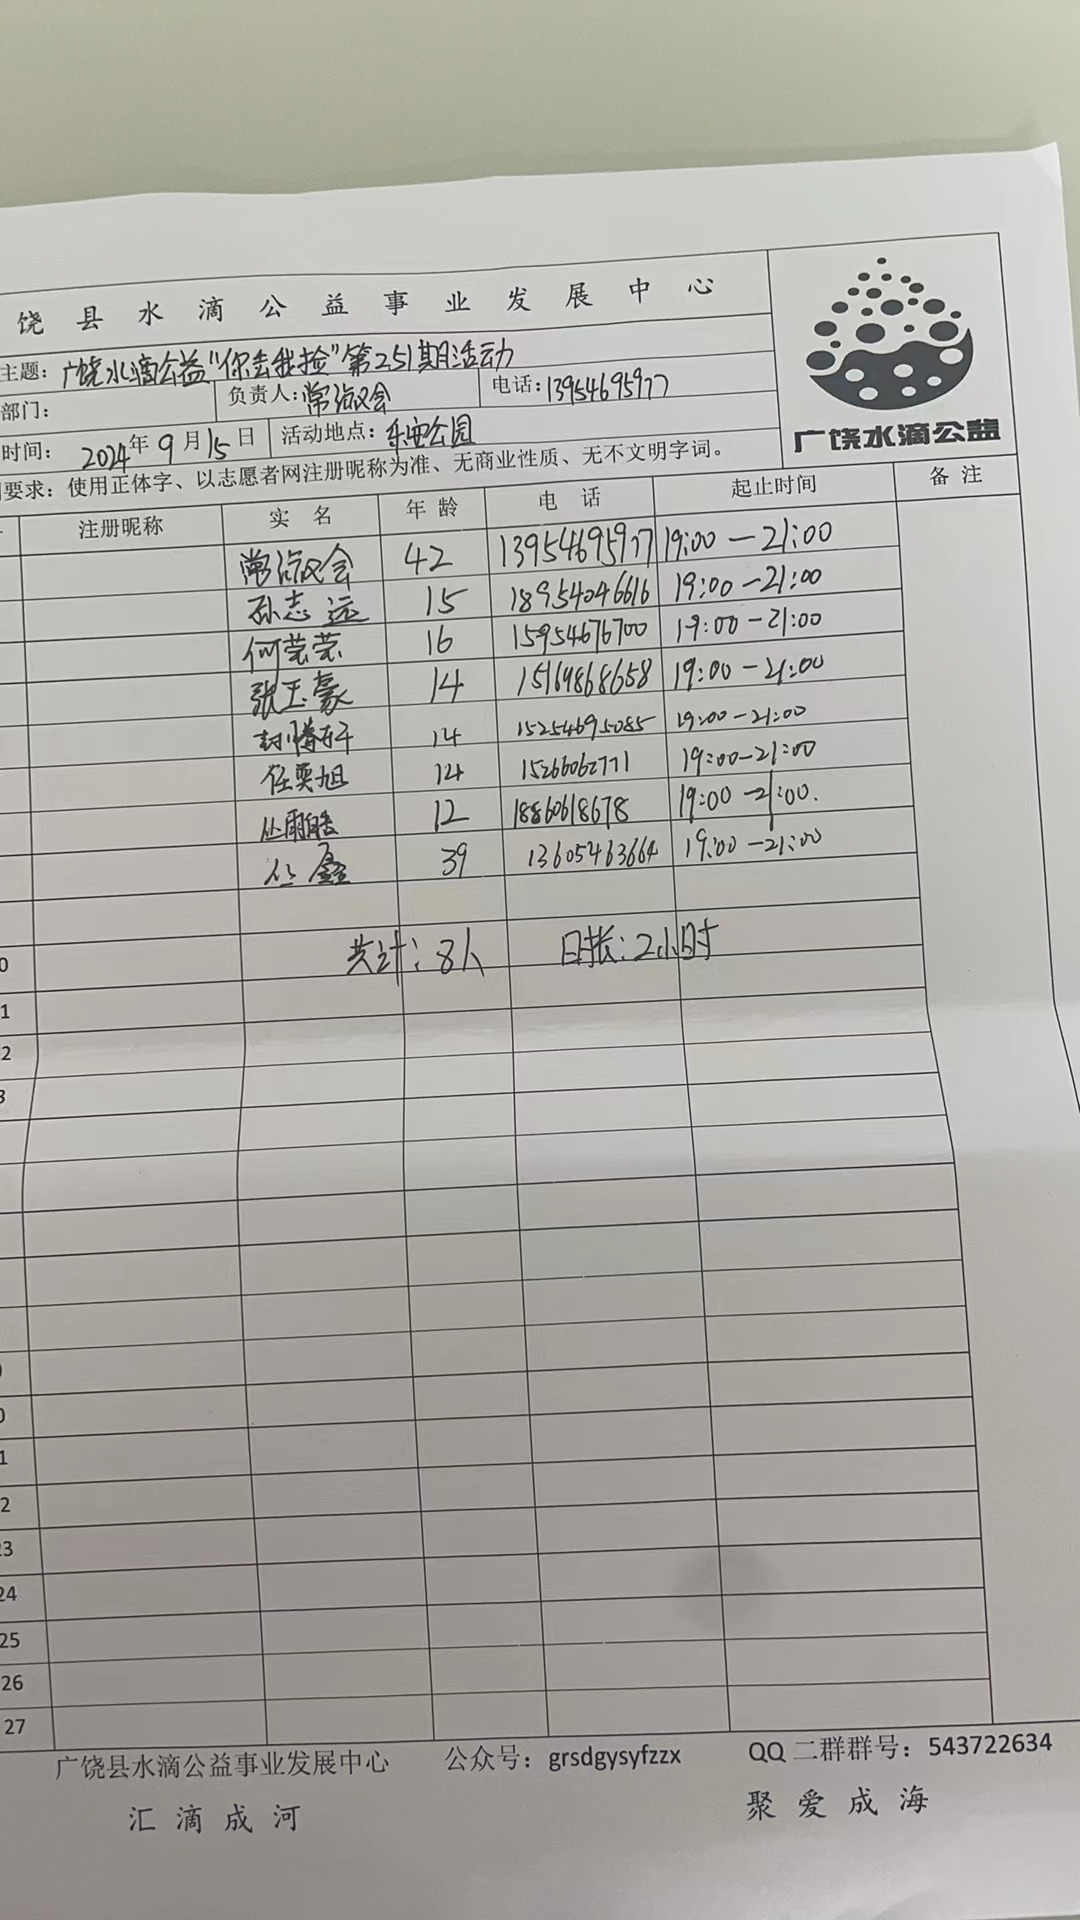 饶县水滴公益事业发展中心
广饶水滴公益
主题：广饶水滴公益“你丢我捡”第251期活动
部门： 负责人：常淑会 电话：13954695977
时间：2024年9月15日 活动地点：乐安公园
要求：使用正体字、以志愿者网注册昵称为准、无商业性质、无不文明字词。
注册昵称 实名 年龄 电话 起止时间 备注
常淑会 42 13954695977 19:00—21:00
孙志远 15 18954046616 19:00—21:00
何芸芸 16 15954676700 19:00—21:00
张玉豪 14 15169868658 19:00—21:00
14 15254695085 19:00—21:00
任奕旭 14 15266062771 19:00—21:00
丛雨皓 12 18860618678 19:00—21:00.
丛鑫 39 13605463664 19:00—21:00
共计：8人 时长：2小时
0
1
2
3
0
1
2
23
24
25
26
27
广饶县水滴公益事业发展中心 公众号：grsdgysyfzzx QQ二群群号：543722634
汇滴成河 聚爱成海